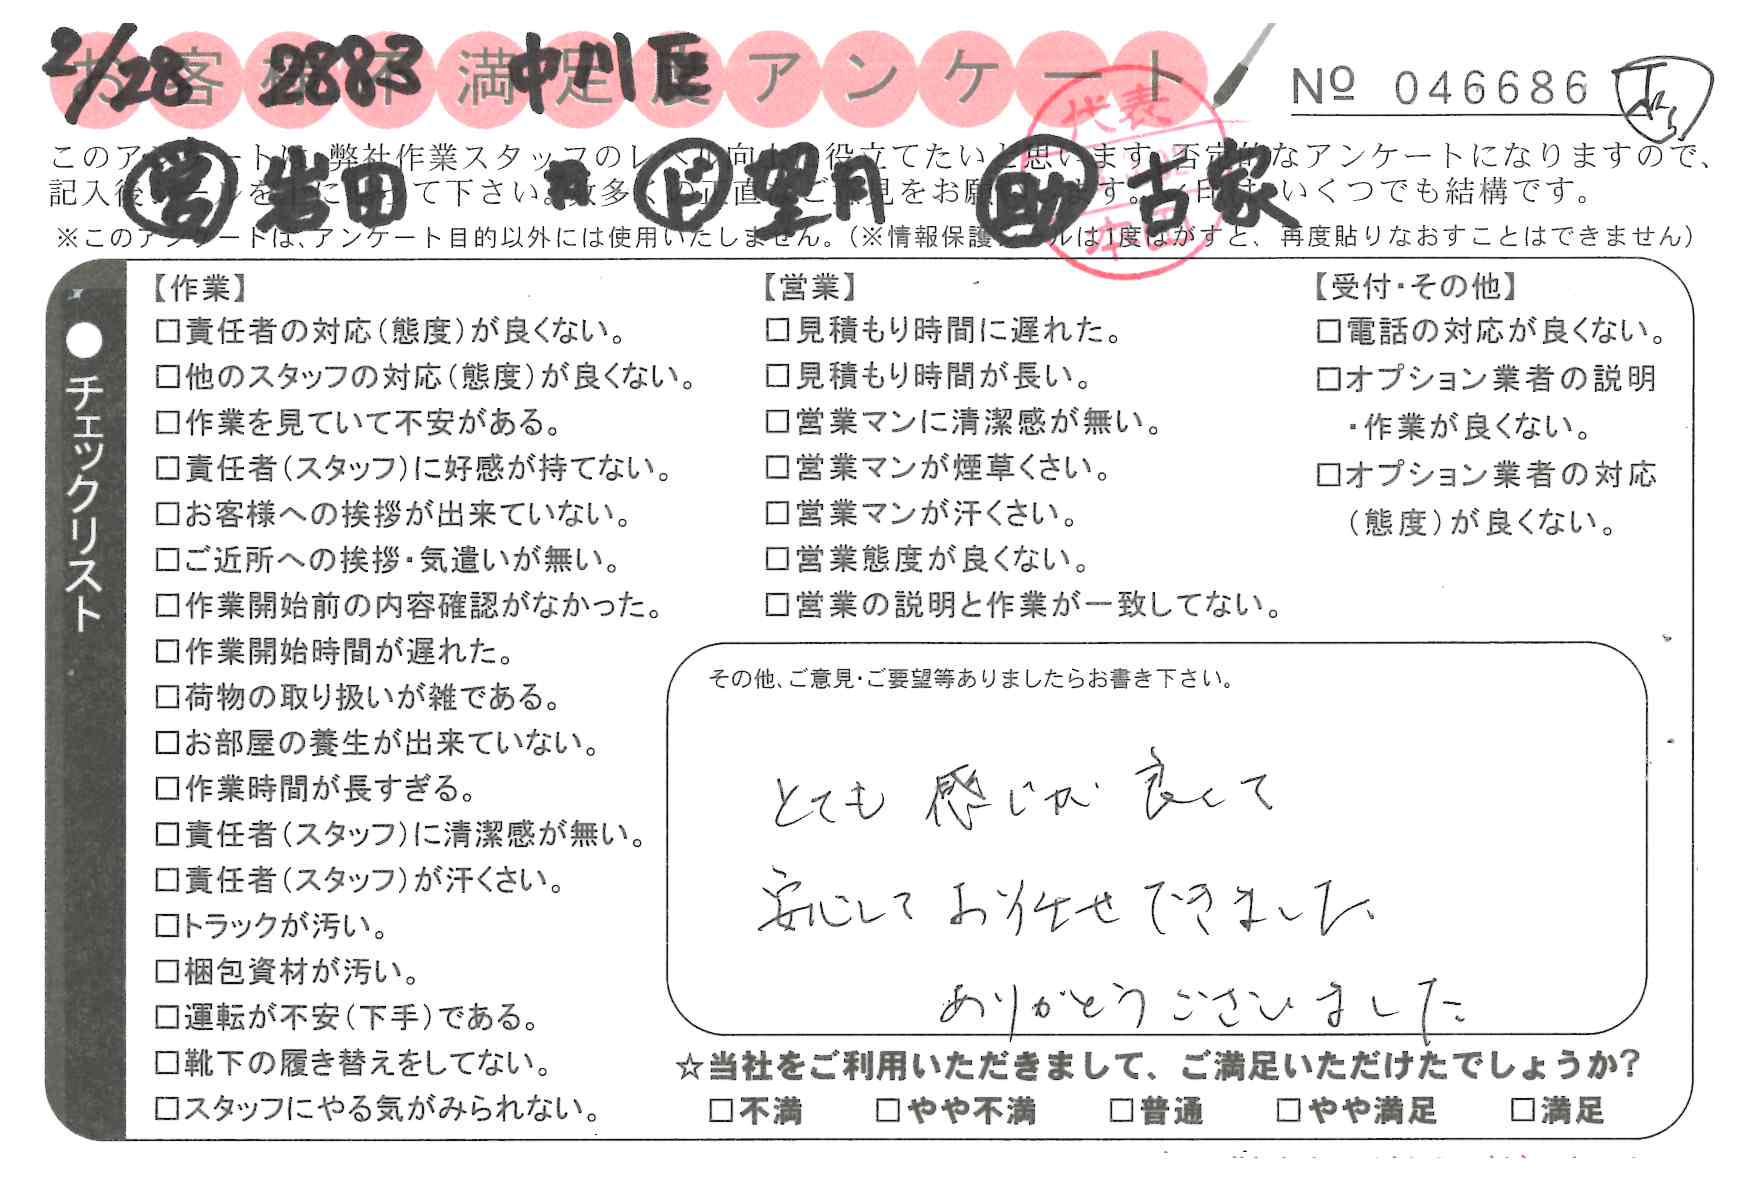 お客様不満足度アンケート
2/28 2883 中川区
№ 046686
このアンケートは、弊社作業スタッフのレベル向上に役立てたいと思います。否定的なアンケートになりますので、
記入後シールを上に貼って下さい。数多くの正直なご意見をお願いします。レ印はいくつでも結構です。
営 岩田 ド 望月 助 古家
代表
※このアンケートは、アンケート目的以外には使用いたしません。(※情報保護シールは1度はがすと、再度貼りなおすことはできません)
●チェックリスト
【作業】
□責任者の対応(態度)が良くない。
□他のスタッフの対応(態度)が良くない。
□作業を見ていて不安がある。
□責任者(スタッフ)に好感が持てない。
□お客様への挨拶が出来ていない。
□ご近所への挨拶・気遣いが無い。
□作業開始前の内容確認がなかった。
□作業開始時間が遅れた。
□荷物の取り扱いが雑である。
□お部屋の養生が出来ていない。
□作業時間が長すぎる。
□責任者(スタッフ)に清潔感が無い。
□責任者(スタッフ)が汗くさい。
□トラックが汚い。
□梱包資材が汚い。
□運転が不安(下手)である。
□靴下の履き替えをしてない。
□スタッフにやる気がみられない。
【営業】
□見積もり時間に遅れた。
□見積もり時間が長い。
□営業マンに清潔感が無い。
□営業マンが煙草くさい。
□営業マンが汗くさい。
□営業態度が良くない。
□営業の説明と作業が一致してない。
【受付・その他】
□電話の対応が良くない。
□オプション業者の説明
・作業が良くない。
□オプション業者の対応
(態度)が良くない。
その他、ご意見・ご要望等ありましたらお書き下さい。
とても 感じが 良くて
安心して お任せ できました
ありがとうございました
☆当社をご利用いただきまして、ご満足いただけたでしょうか?
□不満 □やや不満 □普通 □やや満足 □満足